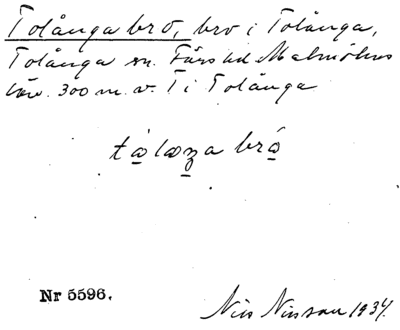 Tolånga bro, bro i Tolånga,
Tolånga sn. Färs hd Malmöhus
län. 300 m. v. T i Tolånga
bro
Nr 5596.
Nils Nilsson 1934.